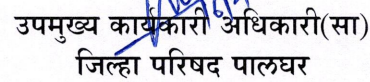 उपमुख्य कार्यकारी अधिकारी(सा)
जिल्हा परिषद पालघर